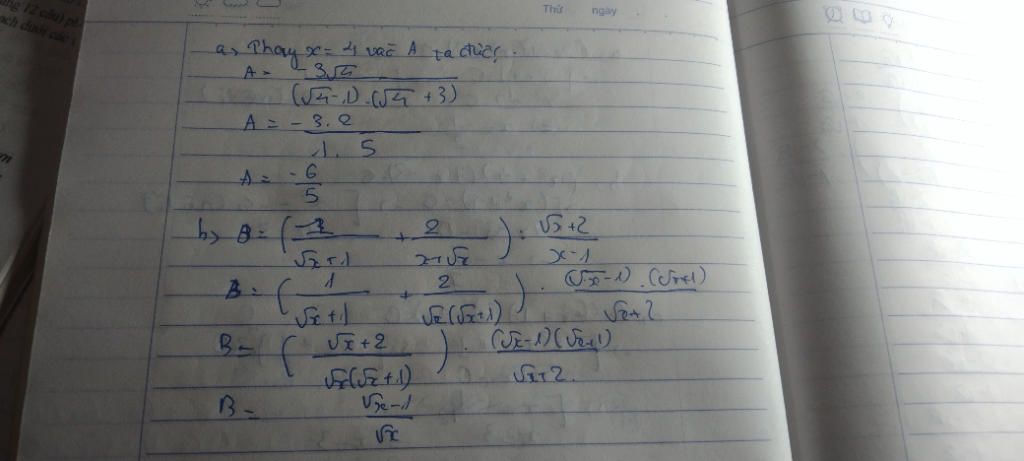 ứng 12 câu) ph
ách dưới các
Thứ ngày
a, Thay x = 4 vào A ta được
A = -3√4 / (√4 - 1).(√4 + 3)
A = -3.2 / 1.5
A = -6/5
b, B = (1/(√x+1) + 2/(x+√x)) : (√x+2)/(x-1)
B = (1/(√x+1) + 2/(√x(√x+1))) . (√x-1).(√x+1)/(√x+2)
B = ((√x+2)/(√x(√x+1))) . (√x-1)(√x+1)/(√x+2)
B = (√x-1)/√x